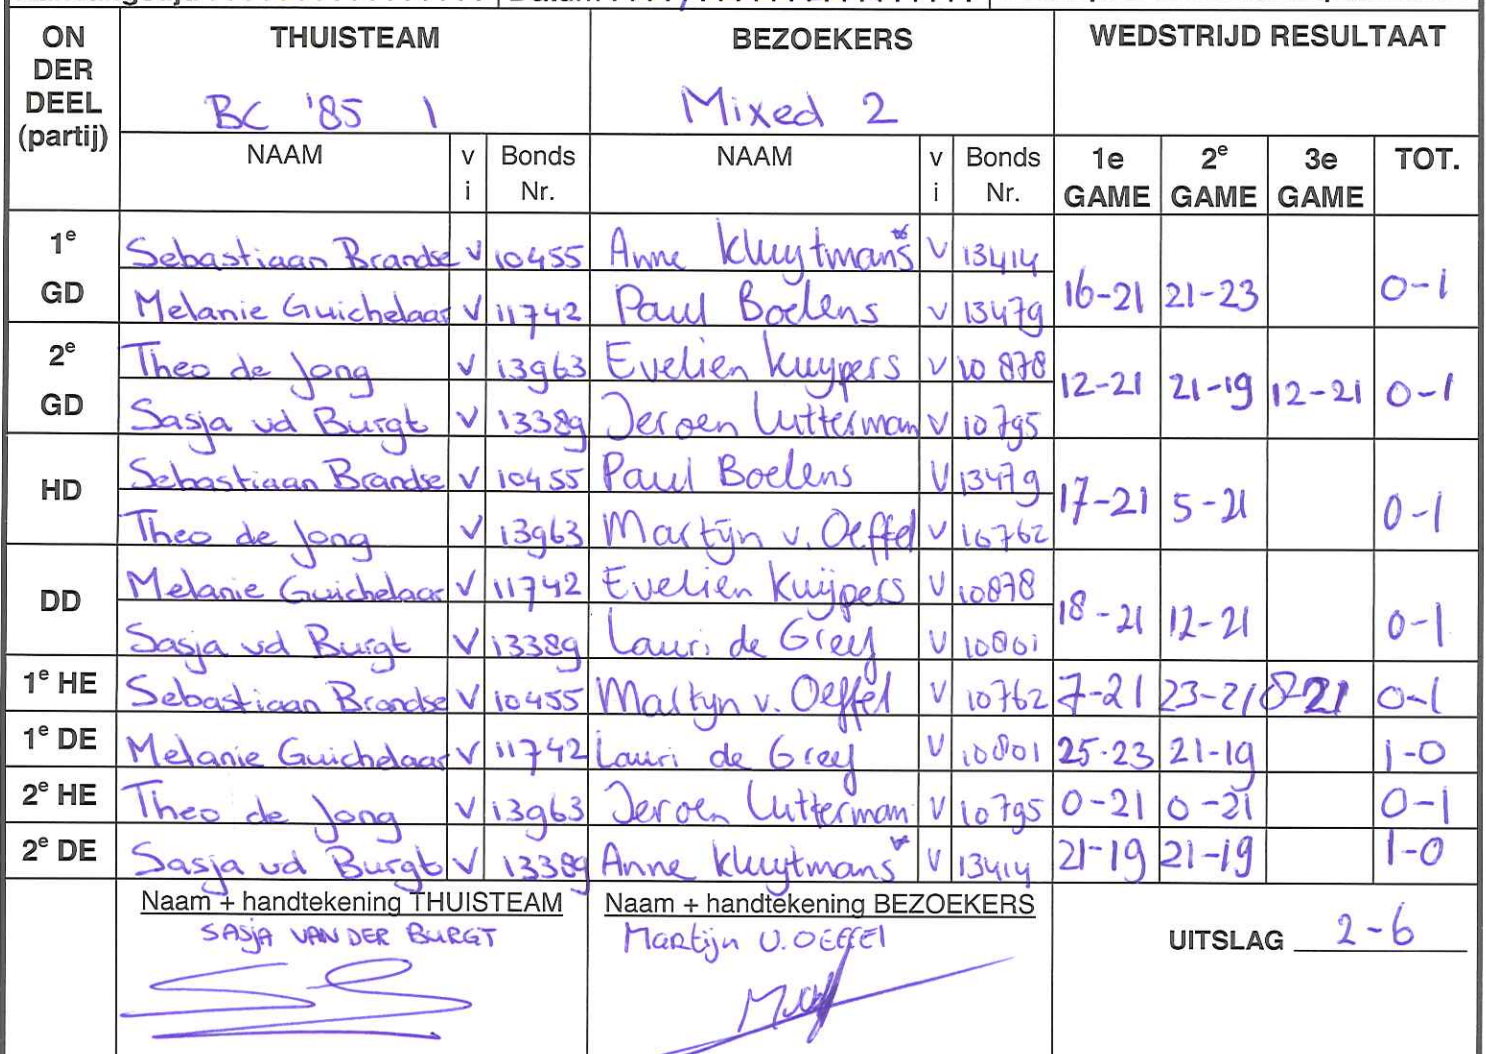 ON DER DEEL (partij) THUISTEAM BEZOEKERS WEDSTRIJD RESULTAAT
BC '85 1 Mixed 2
NAAM v i Bonds Nr. NAAM v i Bonds Nr. 1e GAME 2e GAME 3e GAME TOT.
1e GD Sebastiaan Brandse V 10455 Anne Kluytmans* V 13414 16-21 21-23 0-1
Melanie Guichelaar V 11742 Paul Boelens V 13479
2e GD Theo de Jong V 13963 Evelien Kuypers V 10878 12-21 21-19 12-21 0-1
Sasja vd Burgt V 13389 Jeroen Lutterman V 10795
HD Sebastiaan Brandse V 10455 Paul Boelens V 13479 17-21 5-21 0-1
Theo de Jong V 13963 Martijn v. Oeffel V 10762
DD Melanie Guichelaar V 11742 Evelien Kuijpers V 10878 18-21 12-21 0-1
Sasja vd Burgt V 13389 Lauri de Greef V 10801
1e HE Sebastiaan Brandse V 10455 Martijn v. Oeffel V 10762 7-21 23-21 8-21 0-1
1e DE Melanie Guichelaar V 11742 Lauri de Greef V 10801 25-23 21-19 1-0
2e HE Theo de Jong V 13963 Jeroen Lutterman V 10795 0-21 0-21 0-1
2e DE Sasja vd Burgt V 13389 Anne Kluytmans* V 13414 21-19 21-19 1-0
Naam + handtekening THUISTEAM Naam + handtekening BEZOEKERS
SASJA VAN DER BURGT Martijn V. OEFFEl UITSLAG 2-6